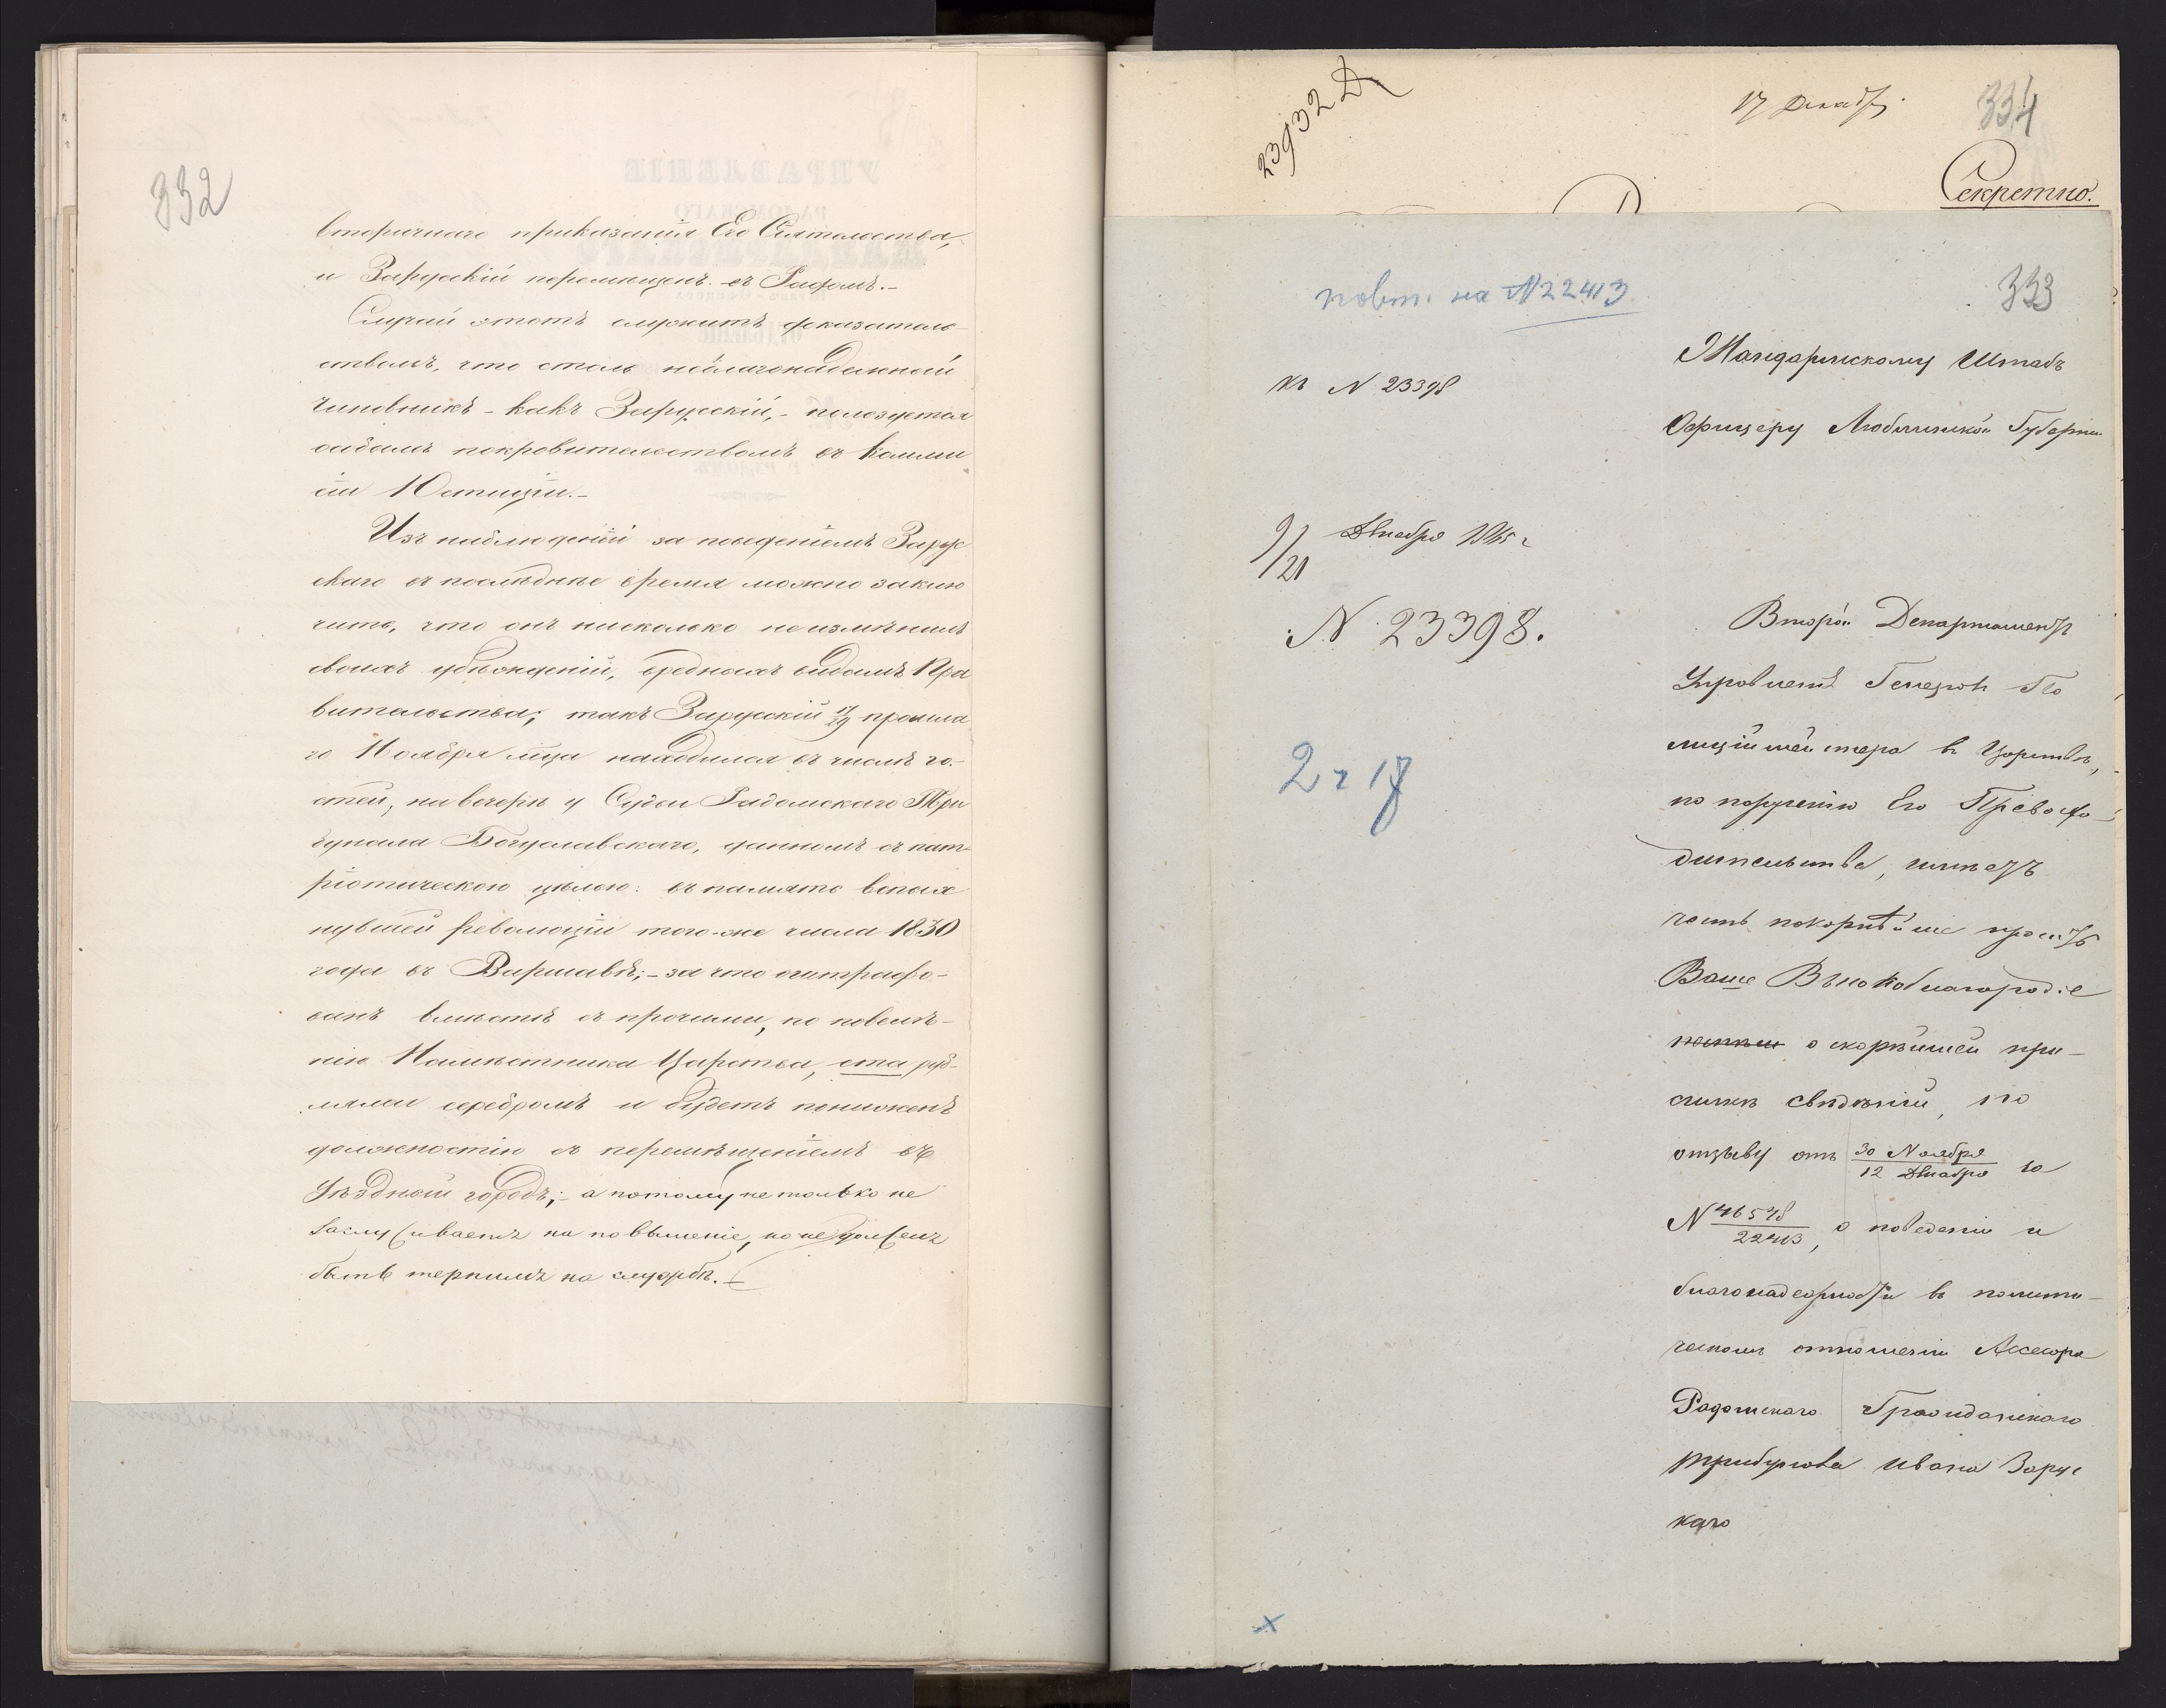 332
вторичнаго приказанія Его Сіятельства,
и Зарускій перемещенъ въ Радомъ.-
Случай этотъ служитъ доказатель-
ствомъ, что столь неблагонадежный
Чиновникъ - какъ Зарусскій, - пользуется
особымъ покровительствомъ въ Комми
сіи Юстиціи.-
Изъ наблюденій за поведеніемъ Зарус
скаго въ послѣднее время можно заклю
чить, что онъ нисколько неизмѣнилъ
своихъ убѣжденій, вредныхъ видамъ Пра
вительства; такъ Зарусскій 17/29 прошла
го Ноября мца находился въ числѣ го-
стей, на вечерѣ у Судьи Радомскаго Три
бунала Богуславскаго, данномъ съ пат-
ріотическою цѣлью: въ память вспых
нувшей революціи того-же числа 1830
года въ Варшавѣ;- за что оштрафо-
ванъ вмѣстѣ съ прочими, по повелѣ-
нію Намѣстника Царства, ста руб-
лями серебромъ и будетъ пониженъ
должностію съ перемѣщеніемъ въ
Уѣздный городъ;- а потому не только не
заслуживаетъ на повышеніе, но не долженъ
быть терпимъ на службѣ.-
23932
17 Декабр.
334
Секретно.
повт. на № 22413
333
Жандармскому Штабъ
къ N 23398
Офицеру Люблинской Губерніи
9/21 Декабря 1865 г
Второй Департаментъ
N 23398.
Управленія Генералъ По
лиціймейстера въ Царствѣ,
2 ч 17
по порученію Его Превосхо-
дительства, имѣетъ
честь покорнѣйше просить
Ваше Высокоблагородіе
о скорѣйшей при-
сылкѣ свѣдѣній, по
отзыву отъ 30 Ноября / 12 Декабря за
N 46578 / 22413, о поведеніи и
благонадежности въ полити-
ческомъ отношеніи Ассесора
Радомскаго Гражданскаго
Трибунала Ивана Зарус
каго